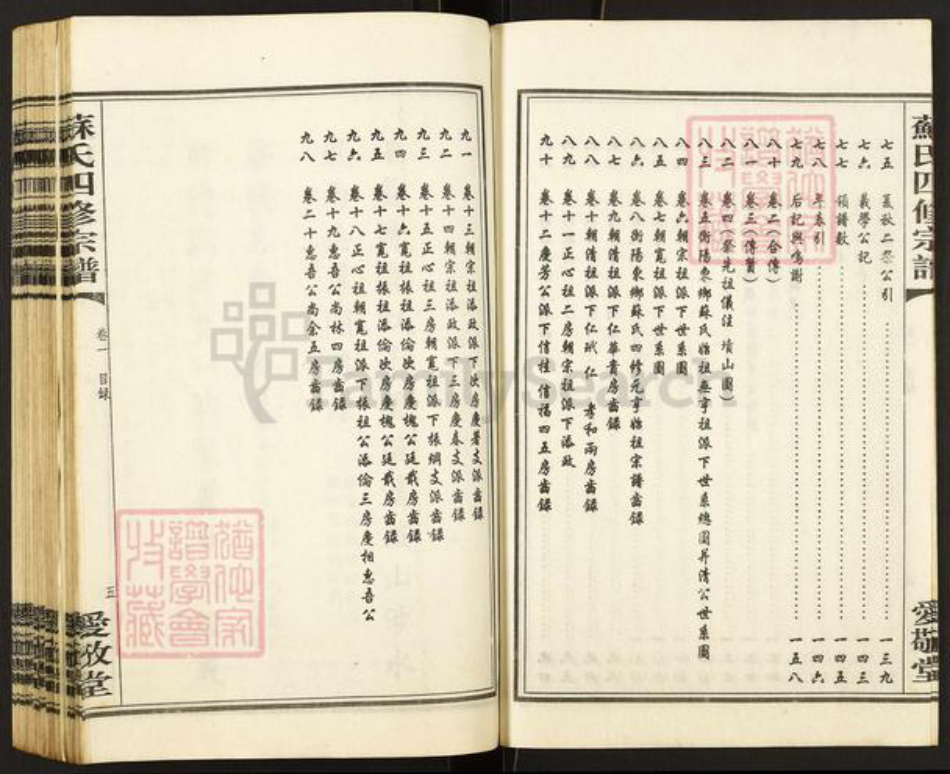 蘇氏四修宗譜
愛敬堂
七五 夏秋二祭公引 一三九
七六 義學公記 一四三
七七 領譜數 一四五
七八 年表引 一四六
七九 后記與鳴謝 一五八
八十 卷二(合傳)
八一 卷三(傳贊)
八二 卷四(祭先祖儀注 墳山圖)
八三 卷五衡陽東鄉蘇氏始祖無亨祖派下世系總圖昇清公世系圖
八四 卷六朝宗祖派下世系圖
八五 卷七朝寬祖派下世系圖
八六 卷八衡陽東鄉蘇氏四修元亨始祖宗譜齒錄
八七 卷九朝清祖派下仁華貴房齒錄
八八 卷十朝清祖派下仁玳 仁 孝和兩房齒錄
八九 卷十一正心祖二房朝宗祖派下添政
九十 卷十二慶芳公派下信桂 信福四五房齒錄
九一 卷十三朝宗祖添政派下次房慶著支派齒錄
九二 卷十四朝宗祖添政派下三房慶春支派齒錄
九三 卷十五正心祖三房朝寬祖派下振綱支派齒錄
九四 卷十六寬祖振祖添倫次房慶槐公廷戠房齒錄
九五 卷十七寬祖振祖添倫次房慶槐公廷戠房齒錄
九六 卷十八正心祖朝寬祖派下振祖公添倫三房慶相惠吾公
九七 卷十九惠吾公尚林四房齒錄
九八 卷二十惠吾公尚余五房齒錄
蘇氏四修宗譜
卷一 目錄
五
愛敬堂
譜學會
收藏
FamilySearch